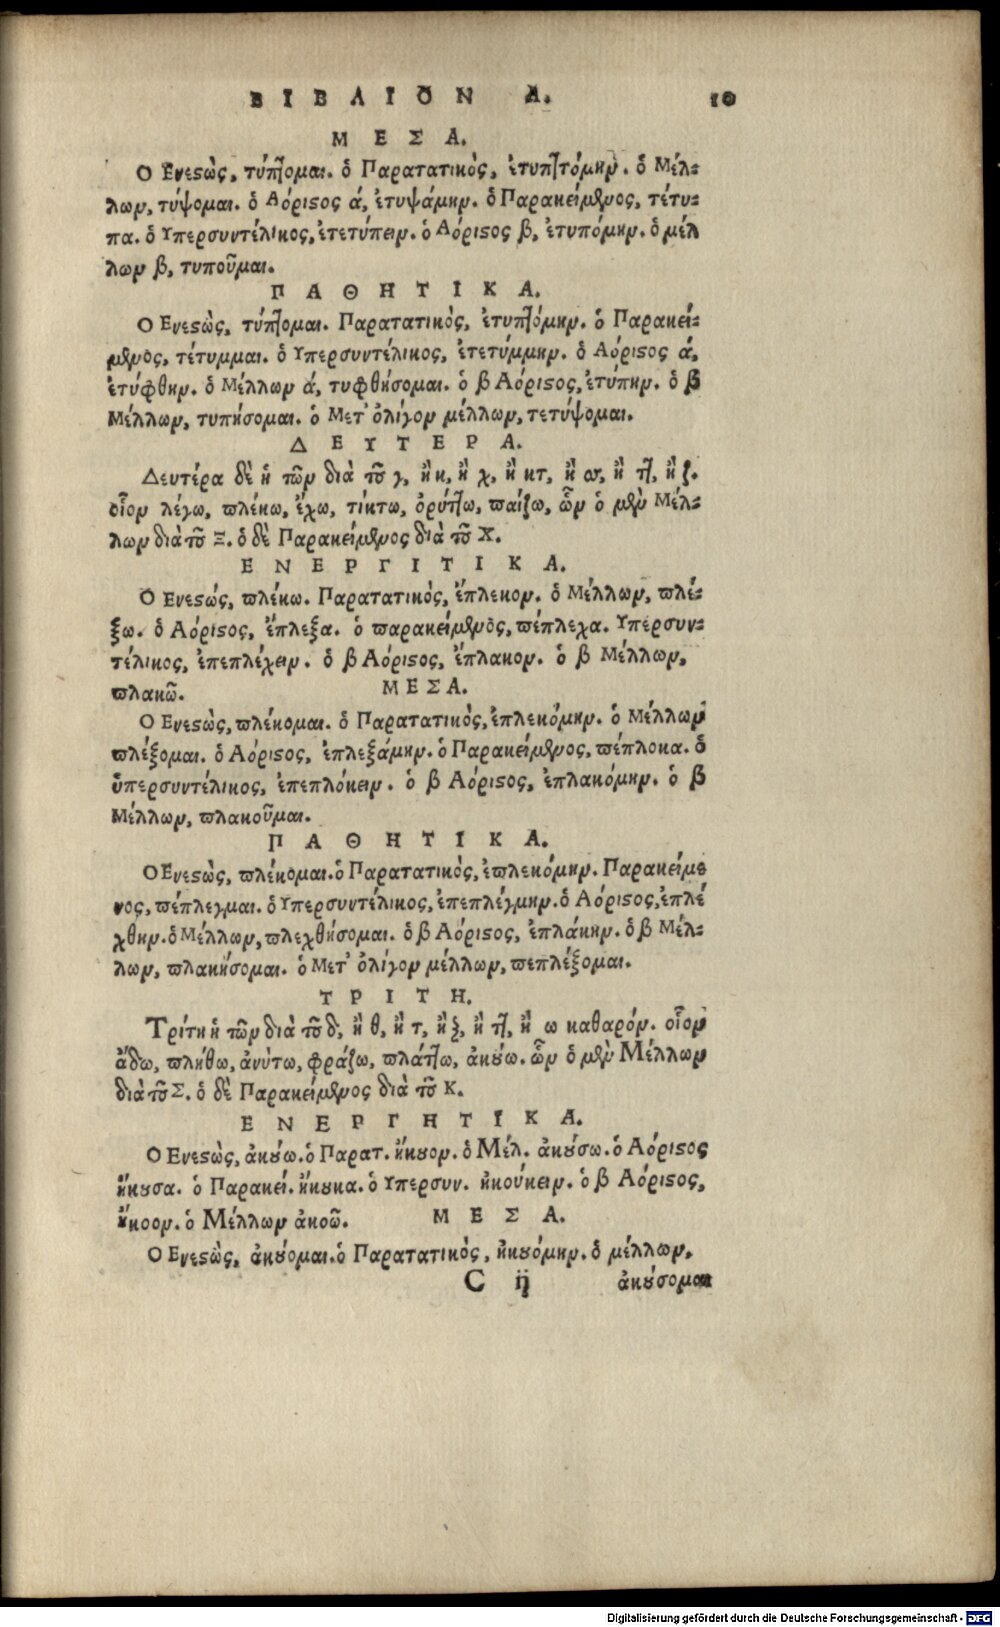 ΒΙΒΛΙΟΝ Α. 10
ΜΕΣΑ.
Ο Ενεστὼς, τύπτομαι. ὁ Παρατατικὸς, ἐτυπτόμην. ὁ Μέλ-
λων, τύψομαι. ὁ Αόριστος ά, ἐτυψάμην. ὁ Παρακείμενος, τέτυ-
πα. ὁ Υπερσυντέλικος, ἐτετύπειν. ὁ Αόριστος β, ἐτυπόμην. ὁ μέλ
λων β, τυποῦμαι.
ΠΑΘΗΤΙΚΑ.
Ο Ενεστὼς, τύπτομαι. Παρατατικὸς, ἐτυπτόμην. ὁ Παρακεί-
μενος, τέτυμμαι. ὁ Υπερσυντέλικος, ἐτετύμμην. ὁ Αόριστος ά,
ἐτύφθην. ὁ Μέλλων ά, τυφθήσομαι. ὁ β Αόριστος, ἐτύπην. ὁ β
Μέλλων, τυπήσομαι. ὁ Μετ' ὀλίγον μέλλων, τετύψομαι.
ΔΕΥΤΕΡΑ.
Δευτέρα δὲ ἡ τῶν διὰ τοῦ γ, ἢ κ, ἢ χ, ἢ κτ, ἢ σκ, ἢ ττ, ἢ ζ.
οἷον λέγω, πλέκω, ἔχω, τίκτω, ὀρύττω, παίζω, ὧν ὁ μὲν Μέλ-
λων διὰ τοῦ Ξ. ὁ δὲ Παρακείμενος διὰ τοῦ Χ.
ΕΝΕΡΓΙΤΙΚΑ.
Ὁ Ενεστώς, πλέκω. Παρατατικὸς, ἔπλεκον. ὁ Μέλλων, πλέ-
ξω. ὁ Αόριστος, ἔπλεξα. ὁ παρακείμενος, πέπλεχα. Υπέρσυν-
τέλικος, ἐπεπλέχειν. ὁ β Αόριστος, ἔπλακον. ὁ β Μέλλων,
πλακῶ. ΜΕΣΑ.
Ο Ενεστὼς, πλέκομαι. ὁ Παρατατικὸς, ἐπλεκόμην. ὁ Μέλλων
πλέξομαι. ὁ Αόριστος, ἐπλεξάμην. ὁ Παρακείμενος, πέπλοκα. ὁ
ὑπερσυντέλικος, ἐπεπλόκειν. ὁ β Αόριστος, ἐπλακόμην. ὁ β
Μέλλων, πλακοῦμαι.
ΠΑΘΗΤΙΚΑ.
Ο Ενεστὼς, πλέκομαι. ὁ Παρατατικὸς, ἐπλεκόμην. Παρακείμε
νος, πέπλεγμαι. ὁ Υπερσυντέλικος, ἐπεπλέγμην. ὁ Αόριστος, ἐπλέ
χθην. ὁ Μέλλων, πλεχθήσομαι. ὁ β Αόριστος, ἐπλάκην. ὁ β Μέλ-
λων, πλακήσομαι. ὁ Μετ' ὀλίγον μέλλων, πεπλέξομαι.
ΤΡΙΤΗ.
Τρίτη ἡ τῶν διὰ τοῦ δ, ἢ θ, ἢ τ, ἢ ζ, ἢ ττ, ἢ ω καθαρόν. οἷον
ᾄδω, πλήθω, ἀνύτω, φράζω, πλάττω, ἀκούω. ὧν ὁ μὲν Μέλλων
διὰ τοῦ Σ. ὁ δὲ Παρακείμενος διὰ τοῦ Κ.
ΕΝΕΡΓΗΤΙΚΑ.
Ο Ενεστὼς, ἀκούω. ὁ Παρατ. ἤκουον. ὁ Μέλ. ἀκούσω. ὁ Αόριστος
ἤκουσα. ὁ Παρακεί. ἤκουκα. ὁ Υπερσυν. ἠκούκειν. ὁ β Αόριστος,
ἤκοον. ὁ Μέλλων ἀκοῶ. ΜΕΣΑ.
Ο Ενεστὼς, ἀκούομαι. ὁ Παρατατικὸς, ἠκουόμην. ὁ μέλλων,
C ij ἀκούσομαι
Digitalisierung gefördert durch die Deutsche Forschungsgemeinschaft - DFG